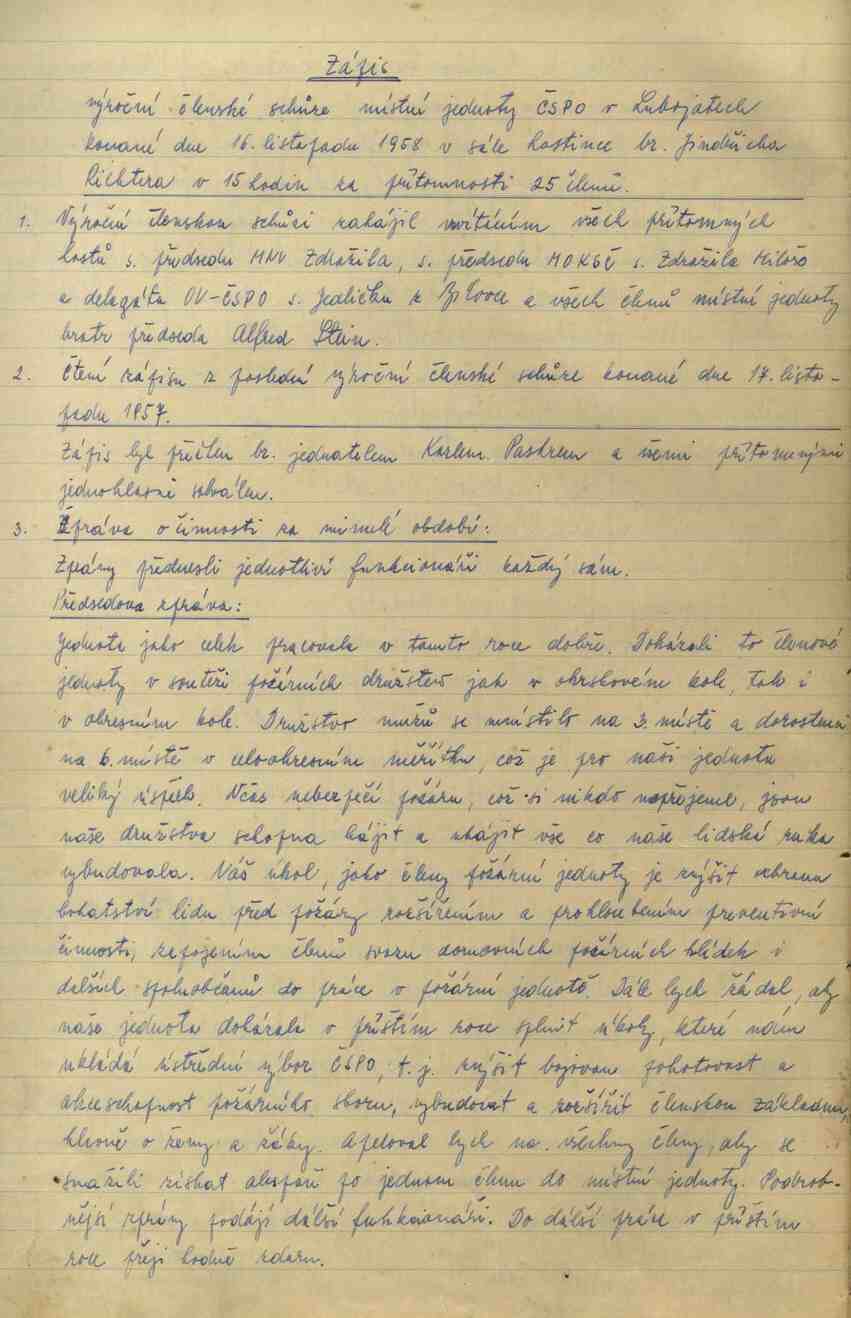 Zápis
výroční členské schůze místní jednoty ČSPO v Lubojatech
konané dne 16. listopadu 1958 v sále hostince br. Jindřicha
Richtera v 15 hodin za přítomnosti 25 členů.
1. Výroční členskou schůzi zahájil uvítáním všech přítomných
hostů s. předsedu MNV Zdražila, s. předsedu s. Zdražila Miloše
a delegáta OV-ČSPO s. Jedličku z Bílovce a všech členů místní jednoty
bratr předseda Alfred Stein.
2. Čtení zápisu z poslední výroční členské schůze konané dne 17. listo-
padu 1957.
Zápis byl přečten br. jednatelem Karlem Pastrem a všemi přítomnými
jednohlasně schválen.
3. Zpráva o činnosti za minulé období:
Zprávy přednesli jednotliví funkcionáři každý sám.
Předsedova zpráva:
Jednota jako celek pracovala v tomto roce dobře. Dokázali to členové
jednoty v soutěži požárních družstev jak v okrskovém kole, tak i
v okresním kole. Družstvo mužů se umístilo na 3. místě a dorostenci
na 6. místě v celookresním měřítku, což je pro naši jednotu
veliký úspěch. Včas nebezpečí požáru, což si nikdo nepřejeme, jsou
naše družstva schopna hájit a uhájit vše co naše lidská ruka
vybudovala. Náš úkol, jako členy požární jednoty je zvýšit ochranu
bohatství lidu před požáry rozšířením a prohloubením preventivní
činnosti, zapojením členů svazu domovních požárních hlídek i
dalších spoluobčanů do práce v požární jednotě. Dále bych žádal, aby
naše jednota dokázala v příštím roce splnit úkoly, které nám
ukládá ústřední výbor ČSPO, t. j. zvýšit bojovou pohotovost a
akceschopnost požárního sboru, vybudovat a rozšířit členskou základnu,
hlavně o ženy a žáky. Apeloval bych na všechny členy, aby se
snažili získat alespoň po jednom členu do místní jednoty. Podrob-
nější zprávy podájí další funkcionáři. Do další práce v příštím
roce přeji hodně zdaru.